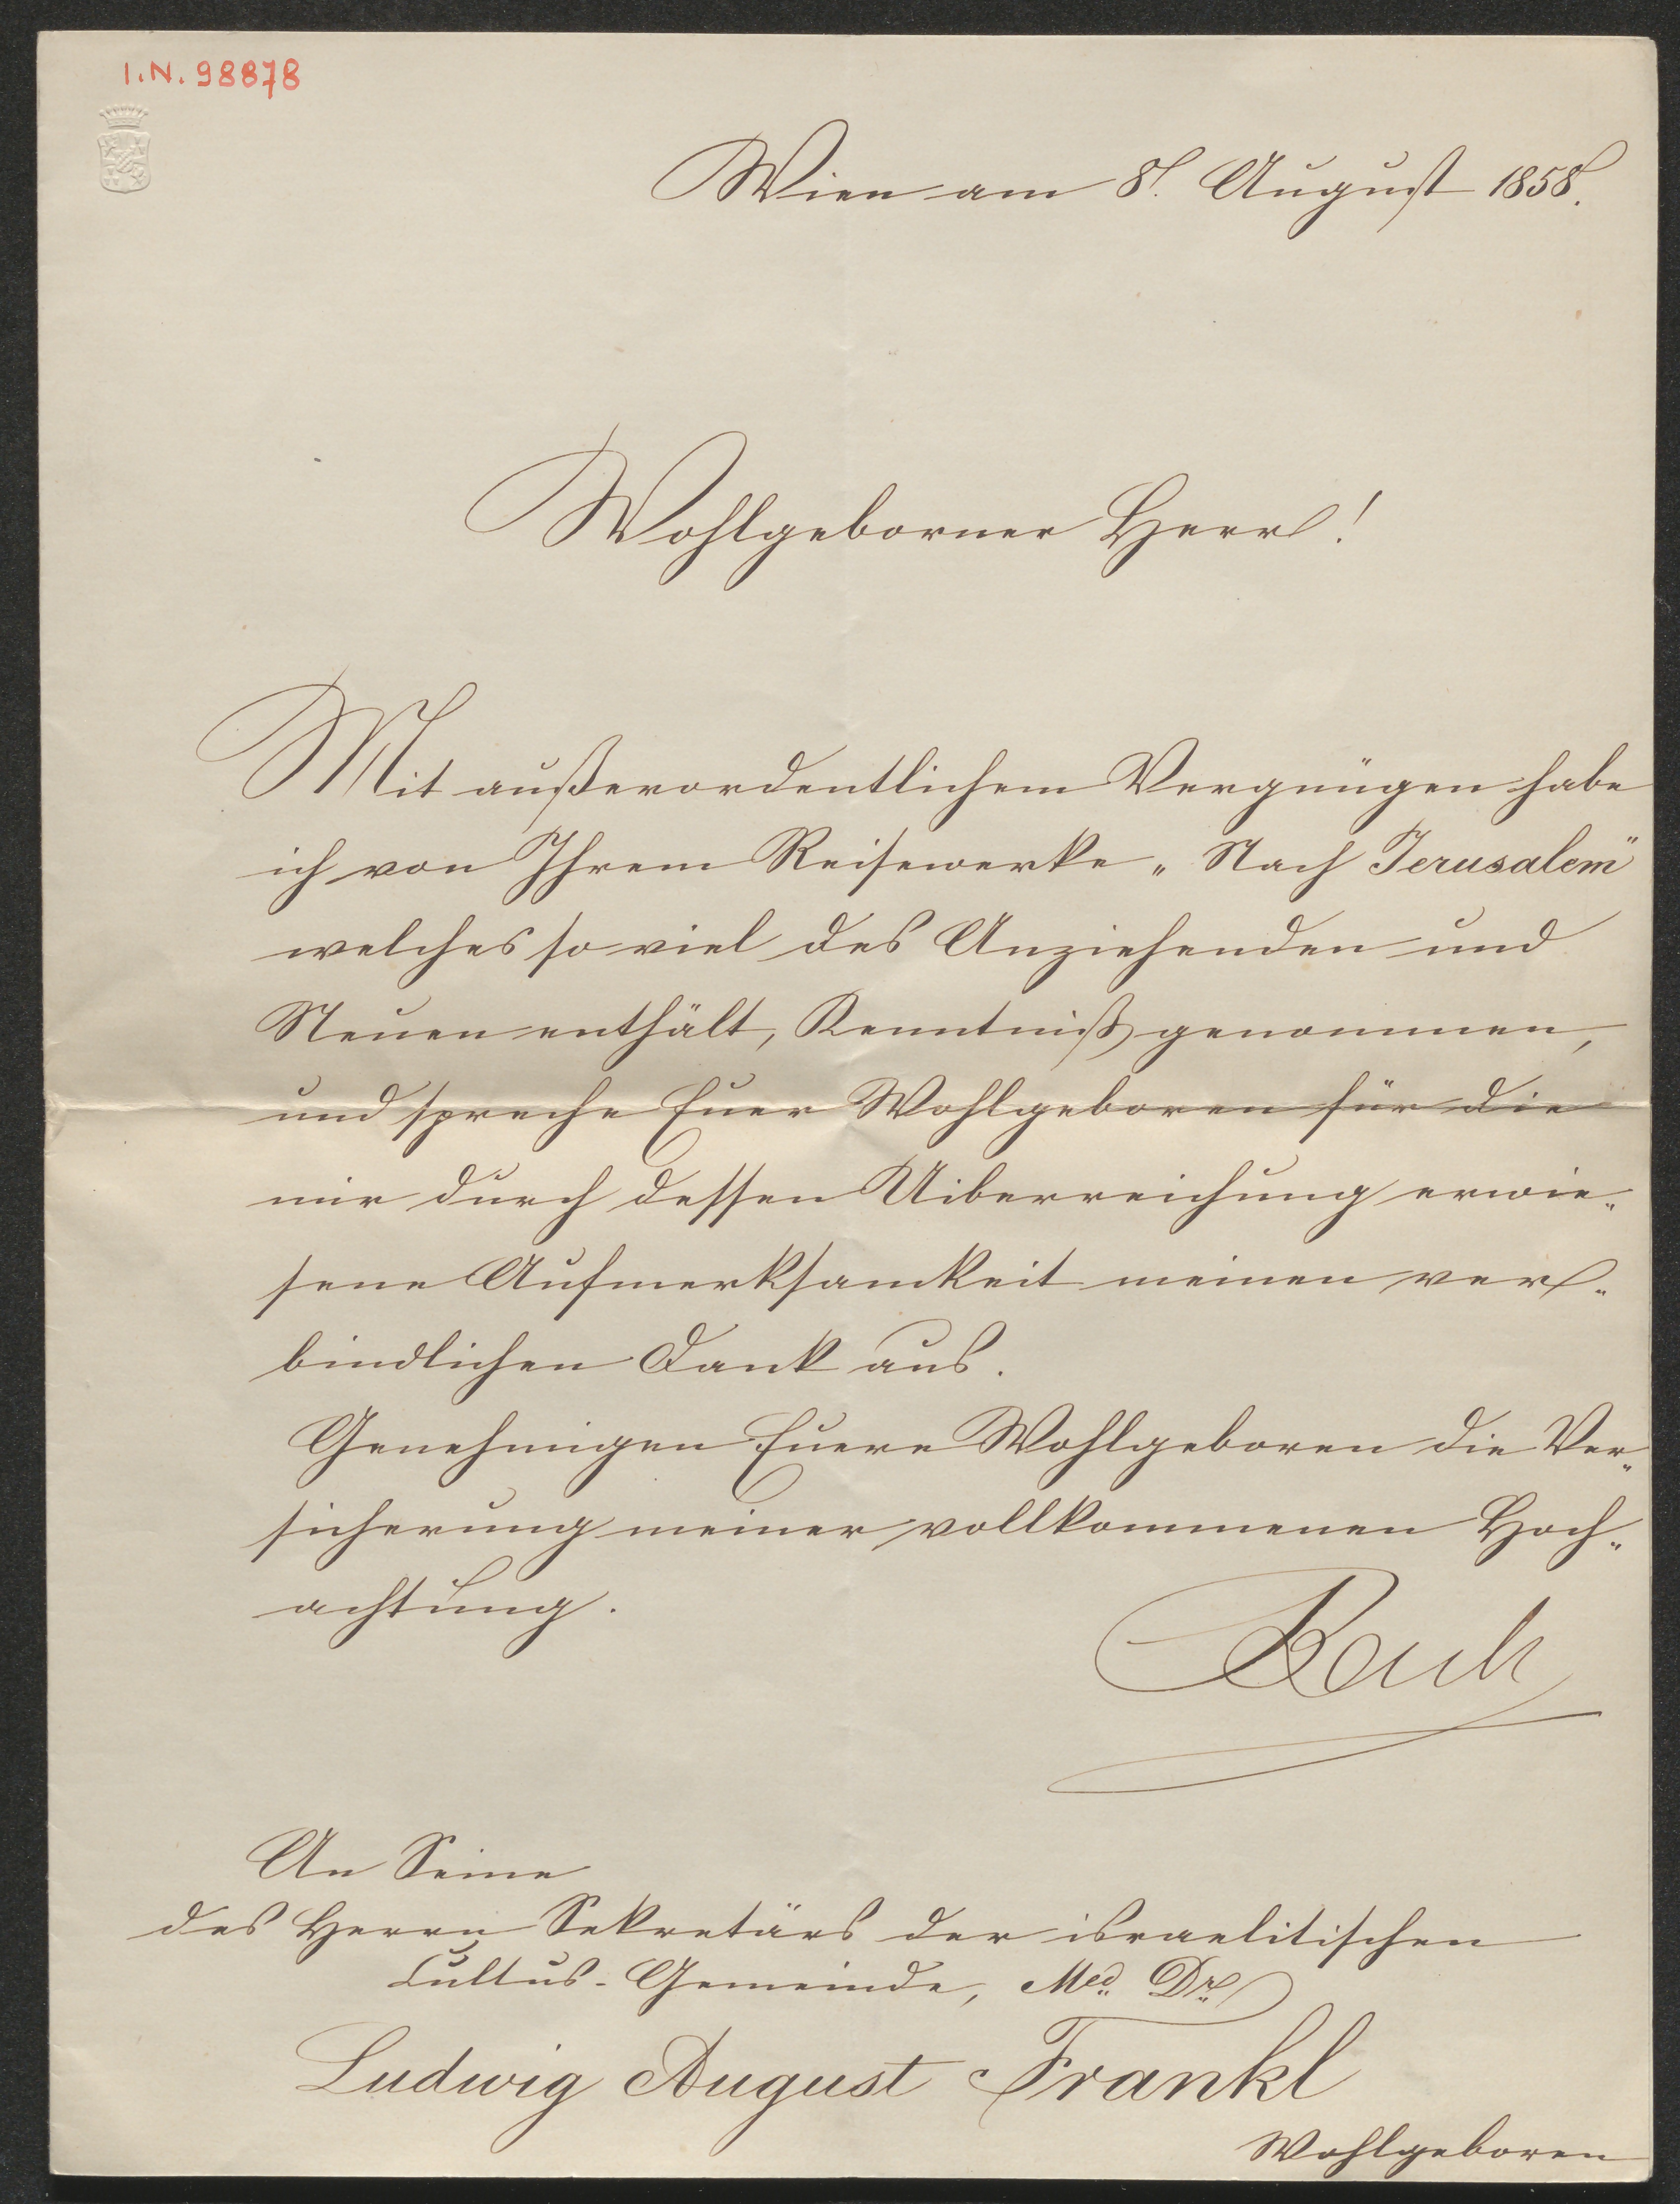 I.N. 98878
Wien am 8. August 1858.
Wohlgeborner Herr!
Mit außerordentlichem Vergnügen habe
ich von Ihrem Reisewerke „Nach Jerusalem"
welches so viel des Anziehenden und
Neuen enthält, Kenntniß genommen,
und spreche Euer Wohlgeboren für die
mir durch dessen Uiberreichung erwie„
sene Aufmerksamkeit meinen ver„
bindlichen Dank aus.
Genehmigen Euere Wohlgeboren die Ver„
sicherung meiner vollkommenen Hoch„
achtung.
Bach
An Seine
des Herrn Sekretärs der israelitischen
Cultus-Gemeinde, Med. Dr.
Ludwig August Frankl
Wohlgeboren